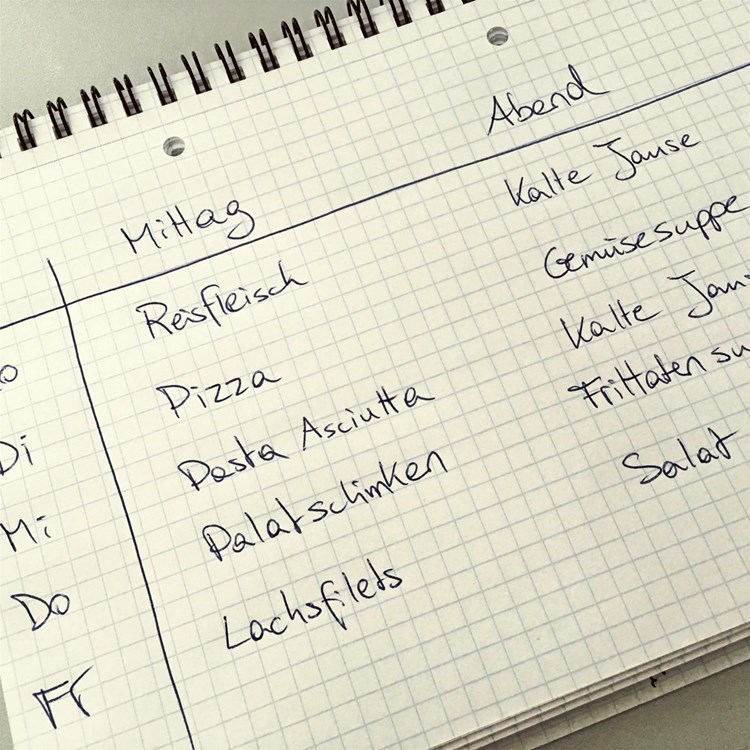 Mittag Abend
o Reisfleisch Kalte Jause
Di Pizza Gemüsesuppe
Mi Pasta Asciutta Kalte Jau
Do Palatschinken Frittatensu
Fr Lachsfilets Salat